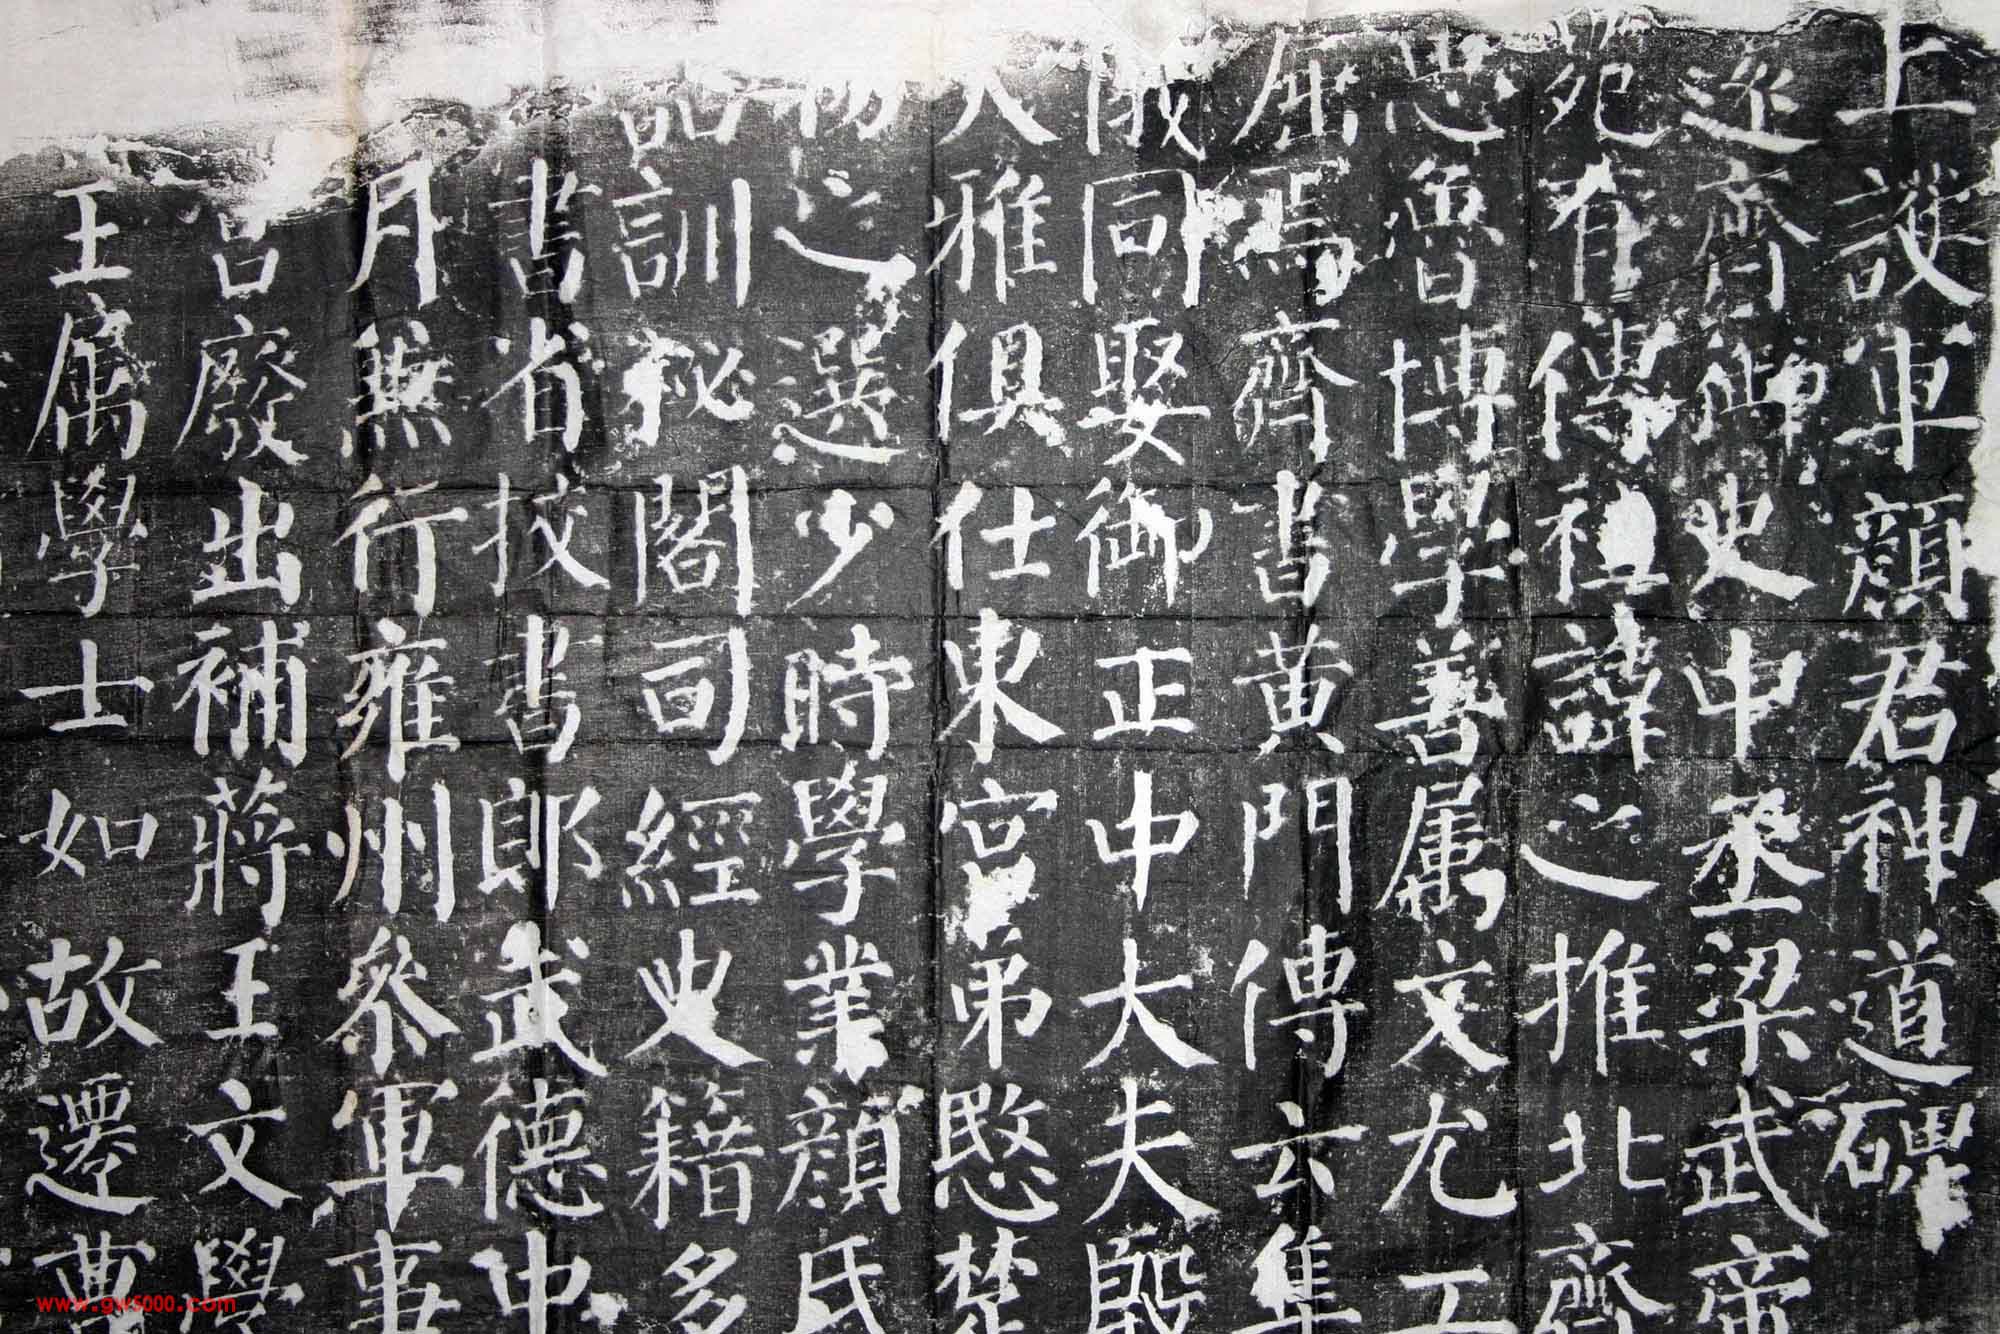 上護軍顏君神道碑
逐齊御史中丞梁武帝
苑有傳祖諱之推北齊
忠魯博學善屬文尤工
屈焉齊書黃門傳云集
同娶御正中大夫殷
人雅俱仕東宮弟愍楚
初之選少時學業顏氏
詔訓秘閣司經史籍多
書省挍書郎武德中
月無行雍州參軍事
宮廢出補蔣王文學
王屬學士如故遷曹
www.gw5000.com